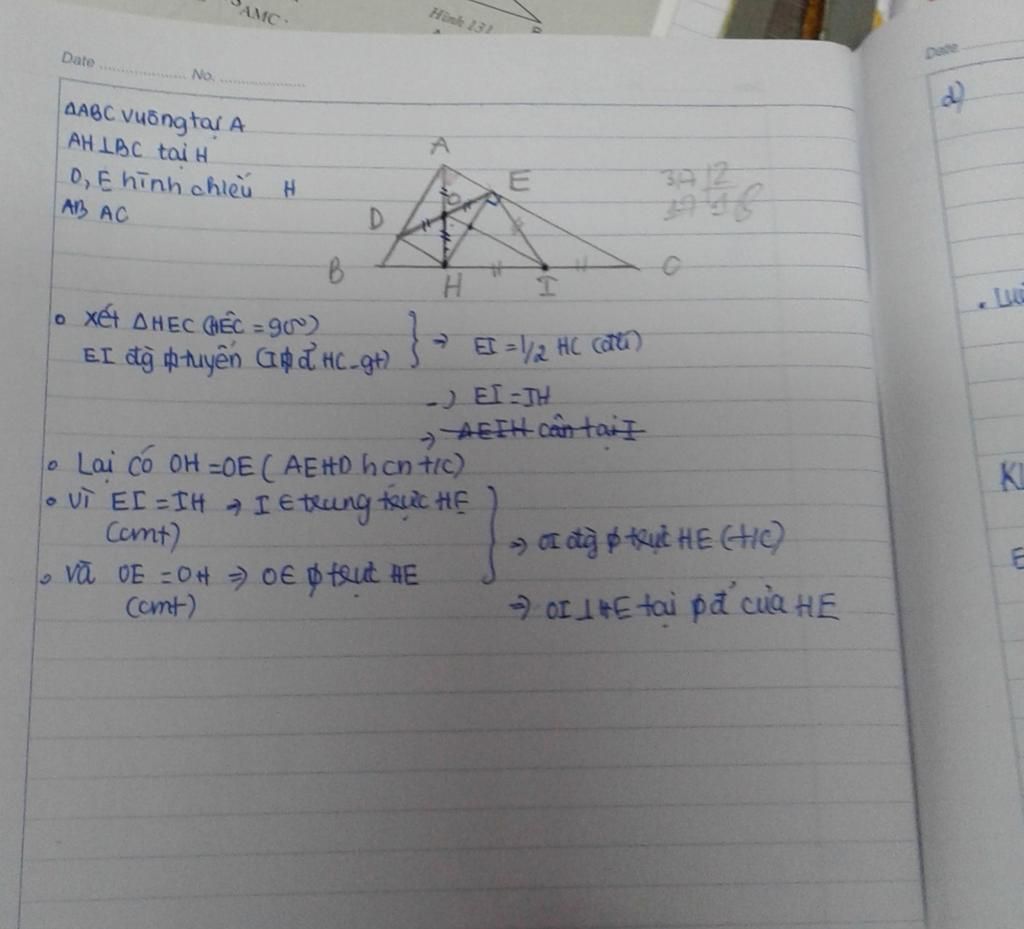 AMC.
Hình 131
Date
No.
Date
ΔABC vuông tại A
AH⊥BC tại H
D, E hình chiếu H
AB AC
A
E
D
O
B
H
I
C
37 2
d)
• Xét ΔHEC (HÊC = 90°)
EI đg φ tuyến (I φ đ' HC - gt)
⇒ EI = 1/2 HC (đlí)
→ EI = IH
⇒ ΔEIH cân tại I
• Lại có OH = OE (AEHD hcn t/c)
• Vì EI = IH ⇒ I ∈ trung trực HE
(cmt)
⇒ OI đg φ trực HE (t/c)
• Và OE = OH ⇒ OE φ trực HE
(cmt)
⇒ OI ⊥ HE tại φ đ' của HE